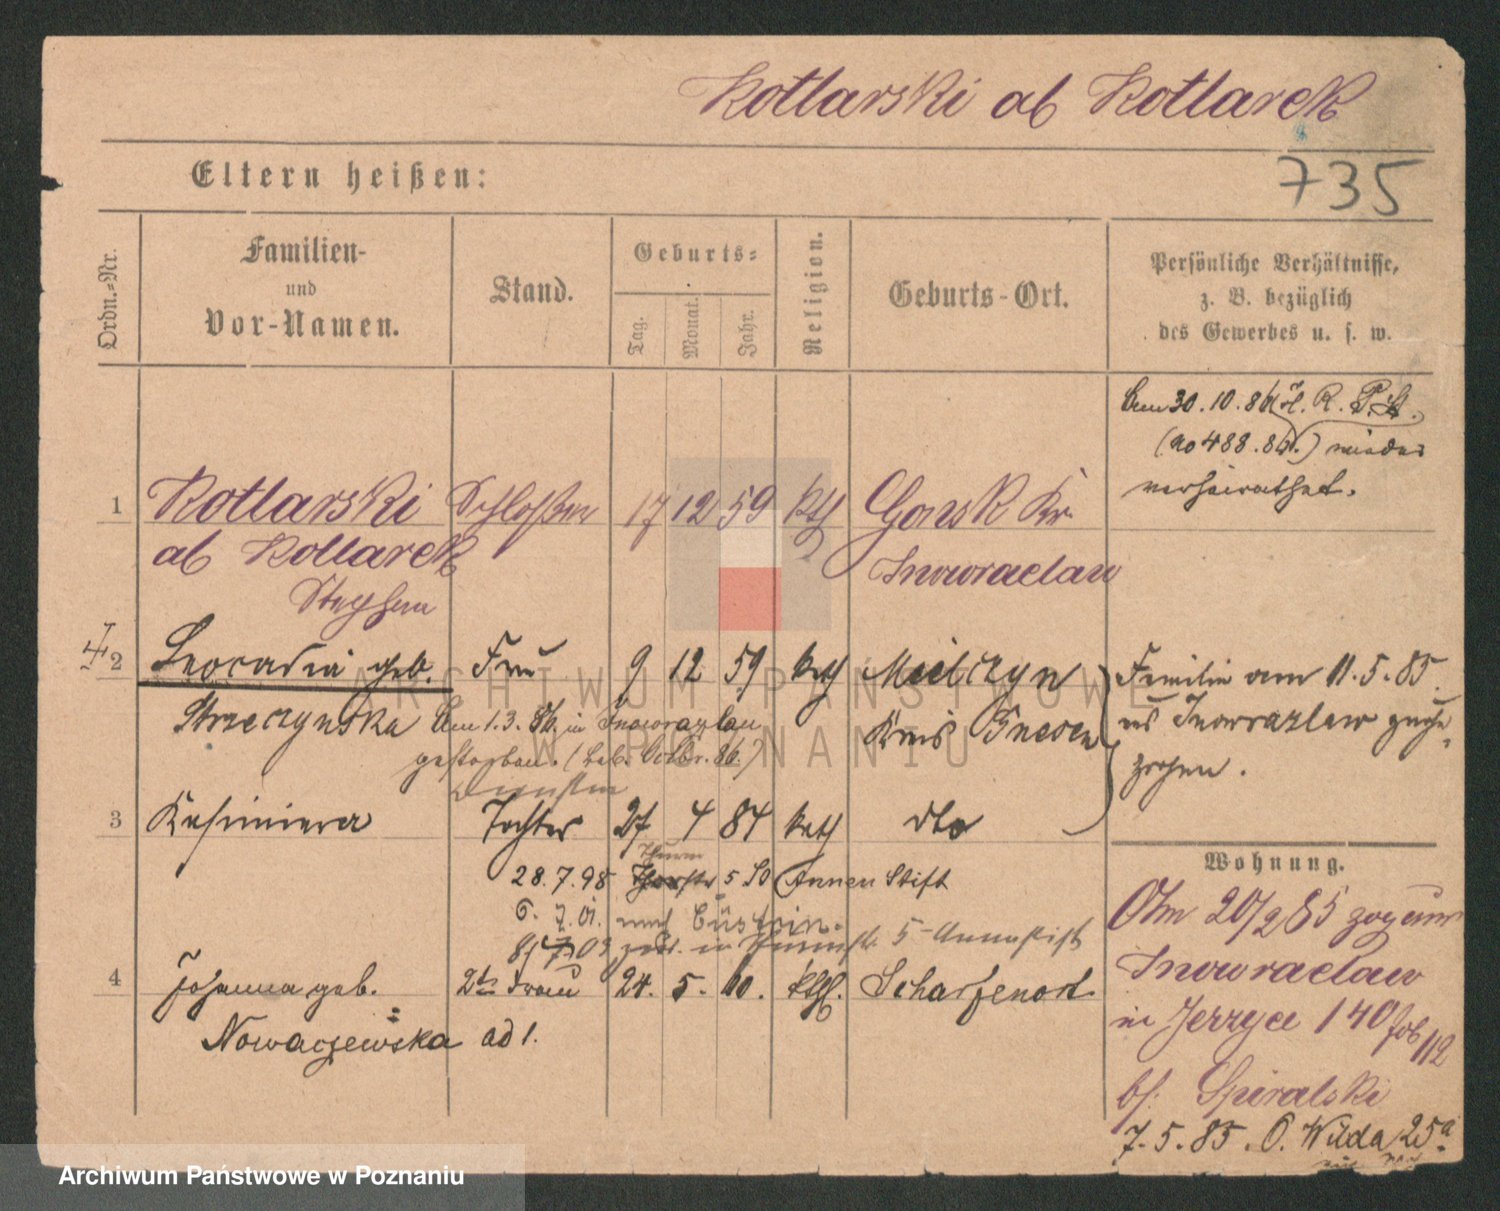 Kotlarski ab Kotlarek
Eltern heißen:
735
Ordn.=Nr.
Familien-
und
Vor-Namen.
Stand.
Geburts=
Tag.
Monat.
Jahr.
Religion.
Geburts-Ort.
Persönliche Verhältnisse,
z. B. bezüglich
des Gewerbes u. s. w.
Am 30.10.86 H. R. P. St.
(No 488.86.) wieder
verheirathet.
1 Kotlarski Schlosser 17 12 59 kth Gonsk Kr.
ab Kotlarek Inowraclaw
Stephan
2 Leocadia geb. Frau 9 12 59 kath Mielczyn
Strzeczynska Am 1.3. 86. in Inowrazlau Kreis Gnesen
gestorben. (Leb. Octbr. 86.)
Familie am 11.5.85
nach Inowrazlaw
zogen.
3 Kasimiera Tochter 27 4 84 kath dto
28.7.98 Thurm 5 Annen Stift
6. 7. 01. nach Cüstrin.
03 zur. in Thurmstr. 5 Annastift
4 Johanna geb. 2te Frau 24. 5. 60. kth. Scharfenort
Nowaczewska ad 1.
Wohnung.
Am 20/2 85 zog von
Inowraclaw
in Jerzyce 140
112
bei Spiralski
7.5.85. O. Wilda 25a
ARCHIWUM PAŃSTWOWE
W POZNANIU
Archiwum Państwowe w Poznaniu